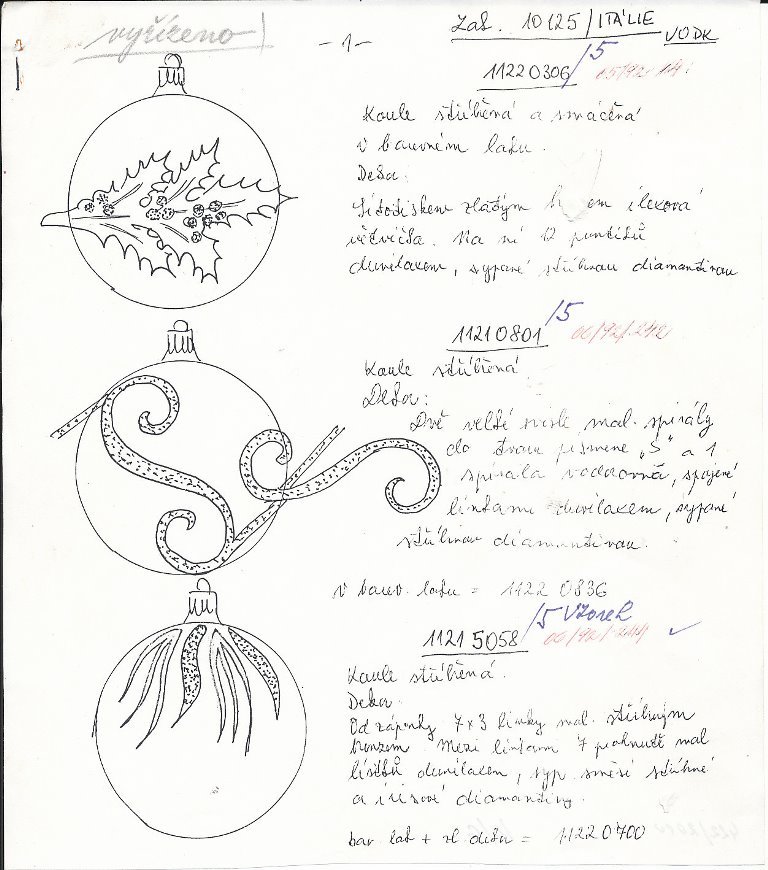 vyřízeno
- 1 -
Zak. 10125/ITÁLIE
VODK
11220306/5
Koule stříbřená a smáčená
v barevném laku.
Deka:
Sítotiskem zlatým ilexová
větvička. Na ní 12 puntíků
duvilakem, sypané stříbrnou diamantinou
11210801/5 00/92/242
Koule stříbřená
Deka:
Dvě velké svisle mal. spirály
do tvaru písmene „S" a 1
spirála vodorovná, spojené
linkami duvilakem, sypané
stříbrnou diamantinou.
v barev. laku = 1122 0836
1121 5058/5 Vzorek
Koule stříbřená.
Deka:
Od záponky 7x3 linky mal. stříbrným
bronzem. Mezi linkami 7 prohnutě mal
lístků duvilakem, syp. směsí stříbrné
a irisové diamantiny.
bar lak + zl deka = 1122 0700